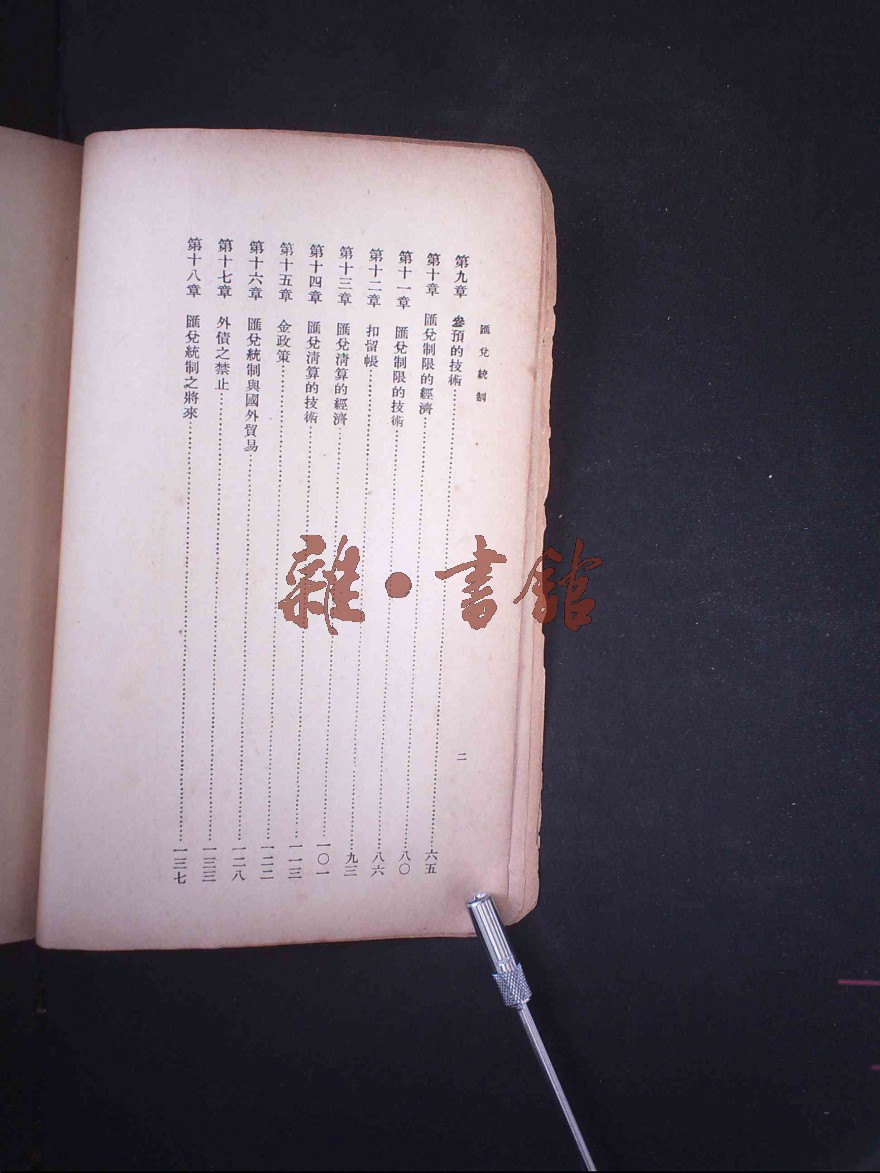 匯兌統制
二
第九章 參預的技術……六五
第十章 匯兌制限的經濟……八〇
第十一章 匯兌制限的技術……八六
第十二章 扣留帳……九三
第十三章 匯兌清算的經濟……一〇一
第十四章 匯兌清算的技術……一一三
第十五章 金政策……一二二
第十六章 匯兌統制與國外貿易……一二八
第十七章 外債之禁止……一三三
第十八章 匯兌統制之將來……一三七
雜·書館